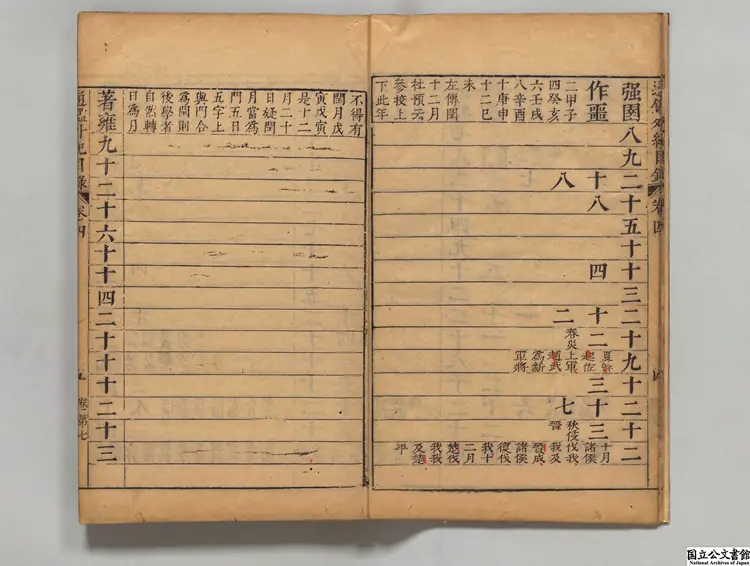 通鑑外紀目錄 卷四 四
强圉八九二十五十十三二十九十二十二
作噩
二甲子
四癸亥
六壬戌
八辛酉
十庚申
十二己
未
左傳閏
十二月
杜預云
參校上
下此年
十八
八
四
十二
二
春災
夏晉
起佐
上軍
趙武
爲新
軍將
三十三
七
秋侵
晉
十月
諸侯
伐我
我及
晉成
諸侯
復伐
我十
二月
楚伐
我我
及楚
平
不得有
閏月戊
寅戊寅
是十二
月二十
日疑閏
月當爲
門五日
五字上
與門合
爲閏則
後學者
自然轉
日爲月
著雍九十二十六十十四二十十十二十三
通鑑外紀目錄 卷四 五 卷第七
国立公文書館
National Archives of Japan